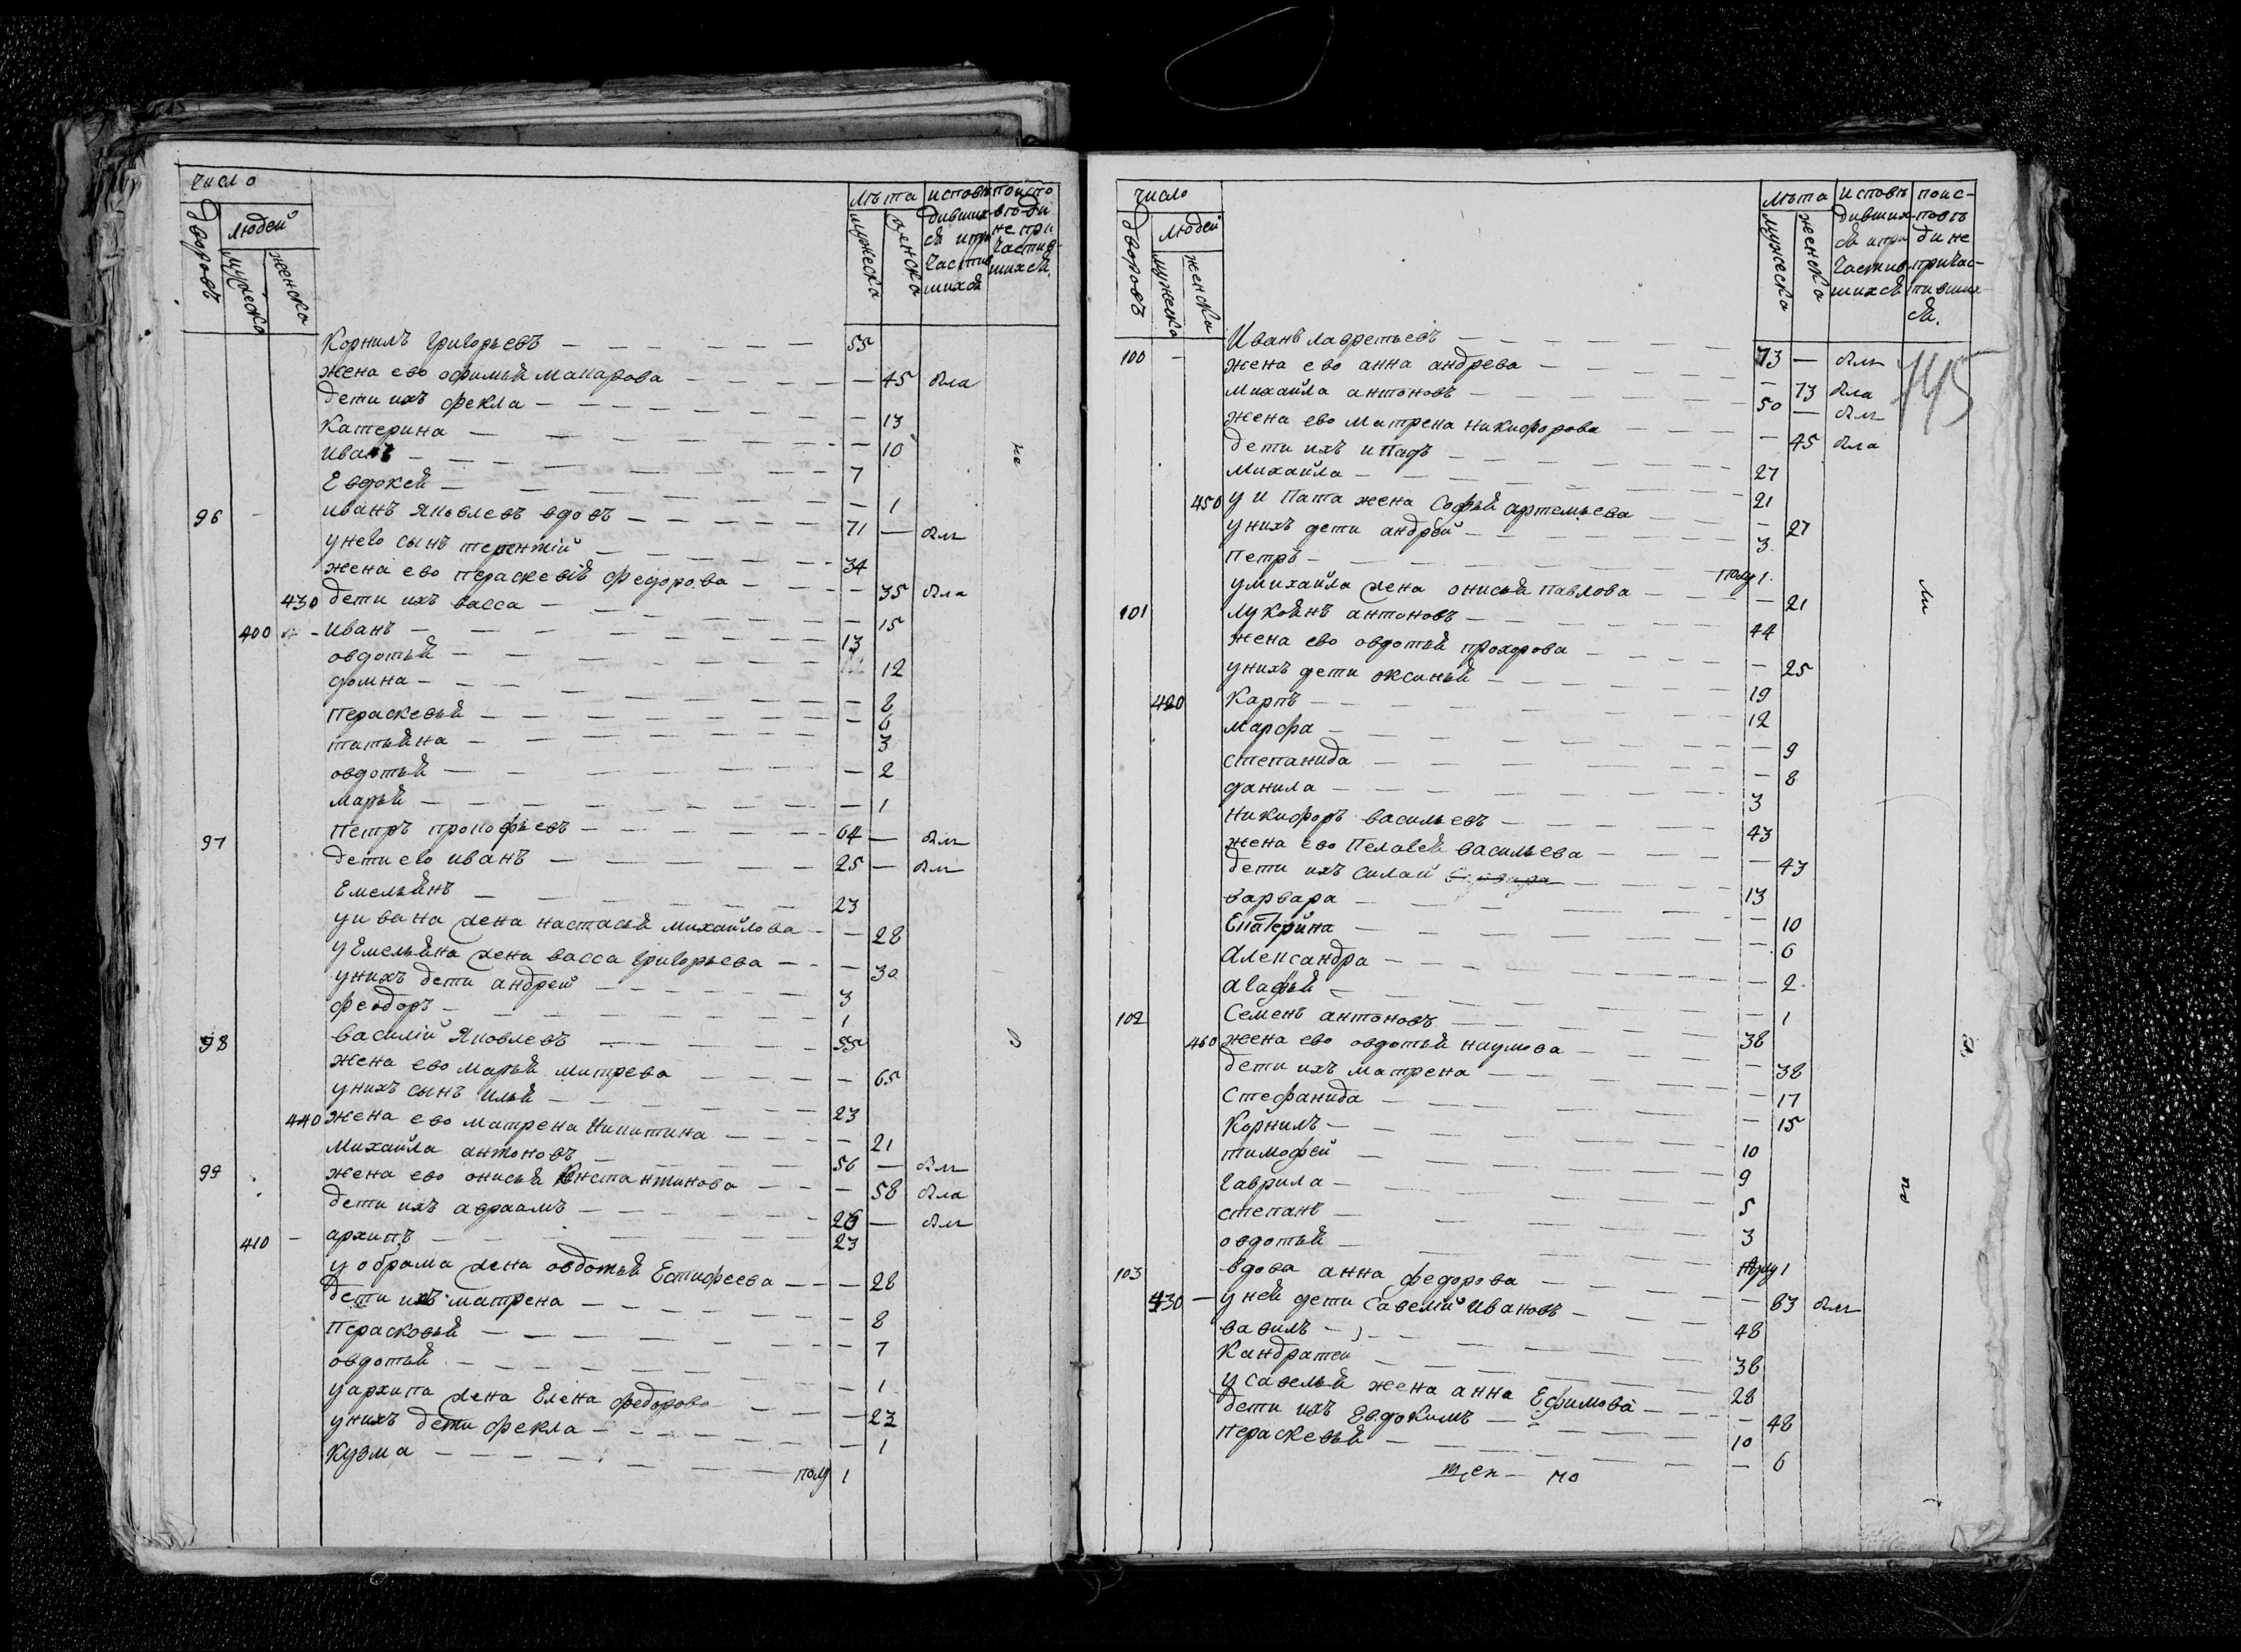 число
дворовъ
людей
мужеска
женска
лѣта
мужеска
женска
исповѣ
дивших
ся и при
частив
шихся
поиспо
вѣ ди
не при
частив-
шихся.
Корнилъ григорьевъ 55
жена ево офимья макарова — 45 был
дети ихъ фекла — 13
Катерина — 10
иванъ 7
Евдокея — 1
96 иванъ яковлевъ вдовъ 71 — был
у него сынъ терентий 34
жена ево пераскевья федорова — 35 была
430 дети ихъ васса — 15
400 иванъ 13
овдотья 12
домна — 8
пераскевья — 6
татьяна 3
овдотья — 2
марья — 1
97 петръ прокофьевъ 64 — был
дети ево иванъ 25 — был
Емельянъ 23
у ивана жена настасья михайлова — 28
у Емельяна жена васса григорьева — 30
у нихъ дети андрей 3
феодоръ 1
98 василий яковлевъ 55
жена ево марья митрева — 65
у нихъ сынъ илья 23
440 жена ево матрена никитина — 21
99 михайла антоновъ 56 — был
жена ево онисья костантинова — 58 была
дети ихъ авраамъ 26 — был
410 — архипъ 23
у обрама жена овдотья Естифеева — 28
дети ихъ матрена — 8
Перасковья — 7
овдотья — 1
у архипа жена Елена федорова — 23
у нихъ дети фекла — 1
Кузма полу 1
число
дворовъ
людей
мужеска
женска
лѣта
мужеска
женска
исповѣ
дивших
ся и при
частив
шихся
поис-
повѣ
ди не
причас-
тивших
ся.
445
100 — Иванъ лаврентьевъ 73 — был
жена ево анна андрева — 73 была
михайла антоновъ 50 — был
жена ево матрена никифорова — 45 была
дети ихъ ипатъ 27
михайла 21
450 у ипата жена Софья артемьева — 27
у нихъ дети андрей 3
петръ полу 1
у михайла жена онисья павлова — 21
101 лукоянъ антоновъ 44
жена ево овдотья прохорова — 25
у нихъ дети оксинья 19
420 Карпъ 12
марфа — 9
степанида — 8
данила 3
никифоръ васильевъ 43
жена ево Пелагея васильева — 43
дети ихъ силай 13
варвара — 10
Екатерина — 6
Александра — 2
агафья — 1
102 Семенъ антоновъ 38
460 жена ево овдотья наумова — 38
дети ихъ матрена — 17
стефанида — 15
Корнилъ 10
тимофей 9
гаврила 5
степанъ 3
овдотья полу 1
103 вдова анна федорова — 63 был
430 — у ней дети савелий ивановъ 48
вавилъ 38
Кандратей 28
у савелья жена анна Ефимова — 48
дети ихъ Евдокимъ 10
пераскевья — 6